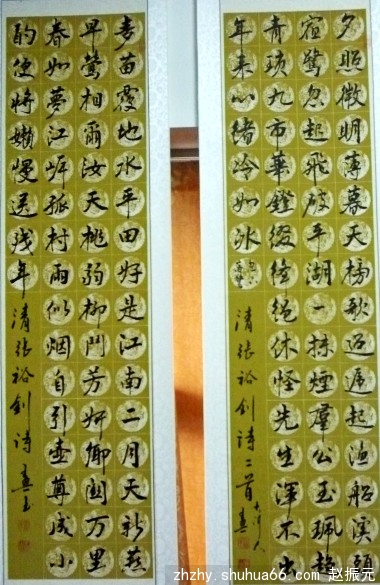 夕照微明薄暮天榜歌迢遞起渔船溪頭
宿鷺忽起飛破平湖一抹煙羣公玉珮趋
青瑣九市華鐙綴绝休怪先生渾不出
年来心緒冷如冰
清張裕釗詩二首
麦苗覆地水平田好是江南二月天新燕
早鶯相爾汝夭桃弱柳鬥芳妍鄉関万里
春如夢江岸孤村雨似烟自引壺尊成小
酌便將嬾慢送残年
清張裕釗詩
zhzhy.shuhua66.com 赵振元